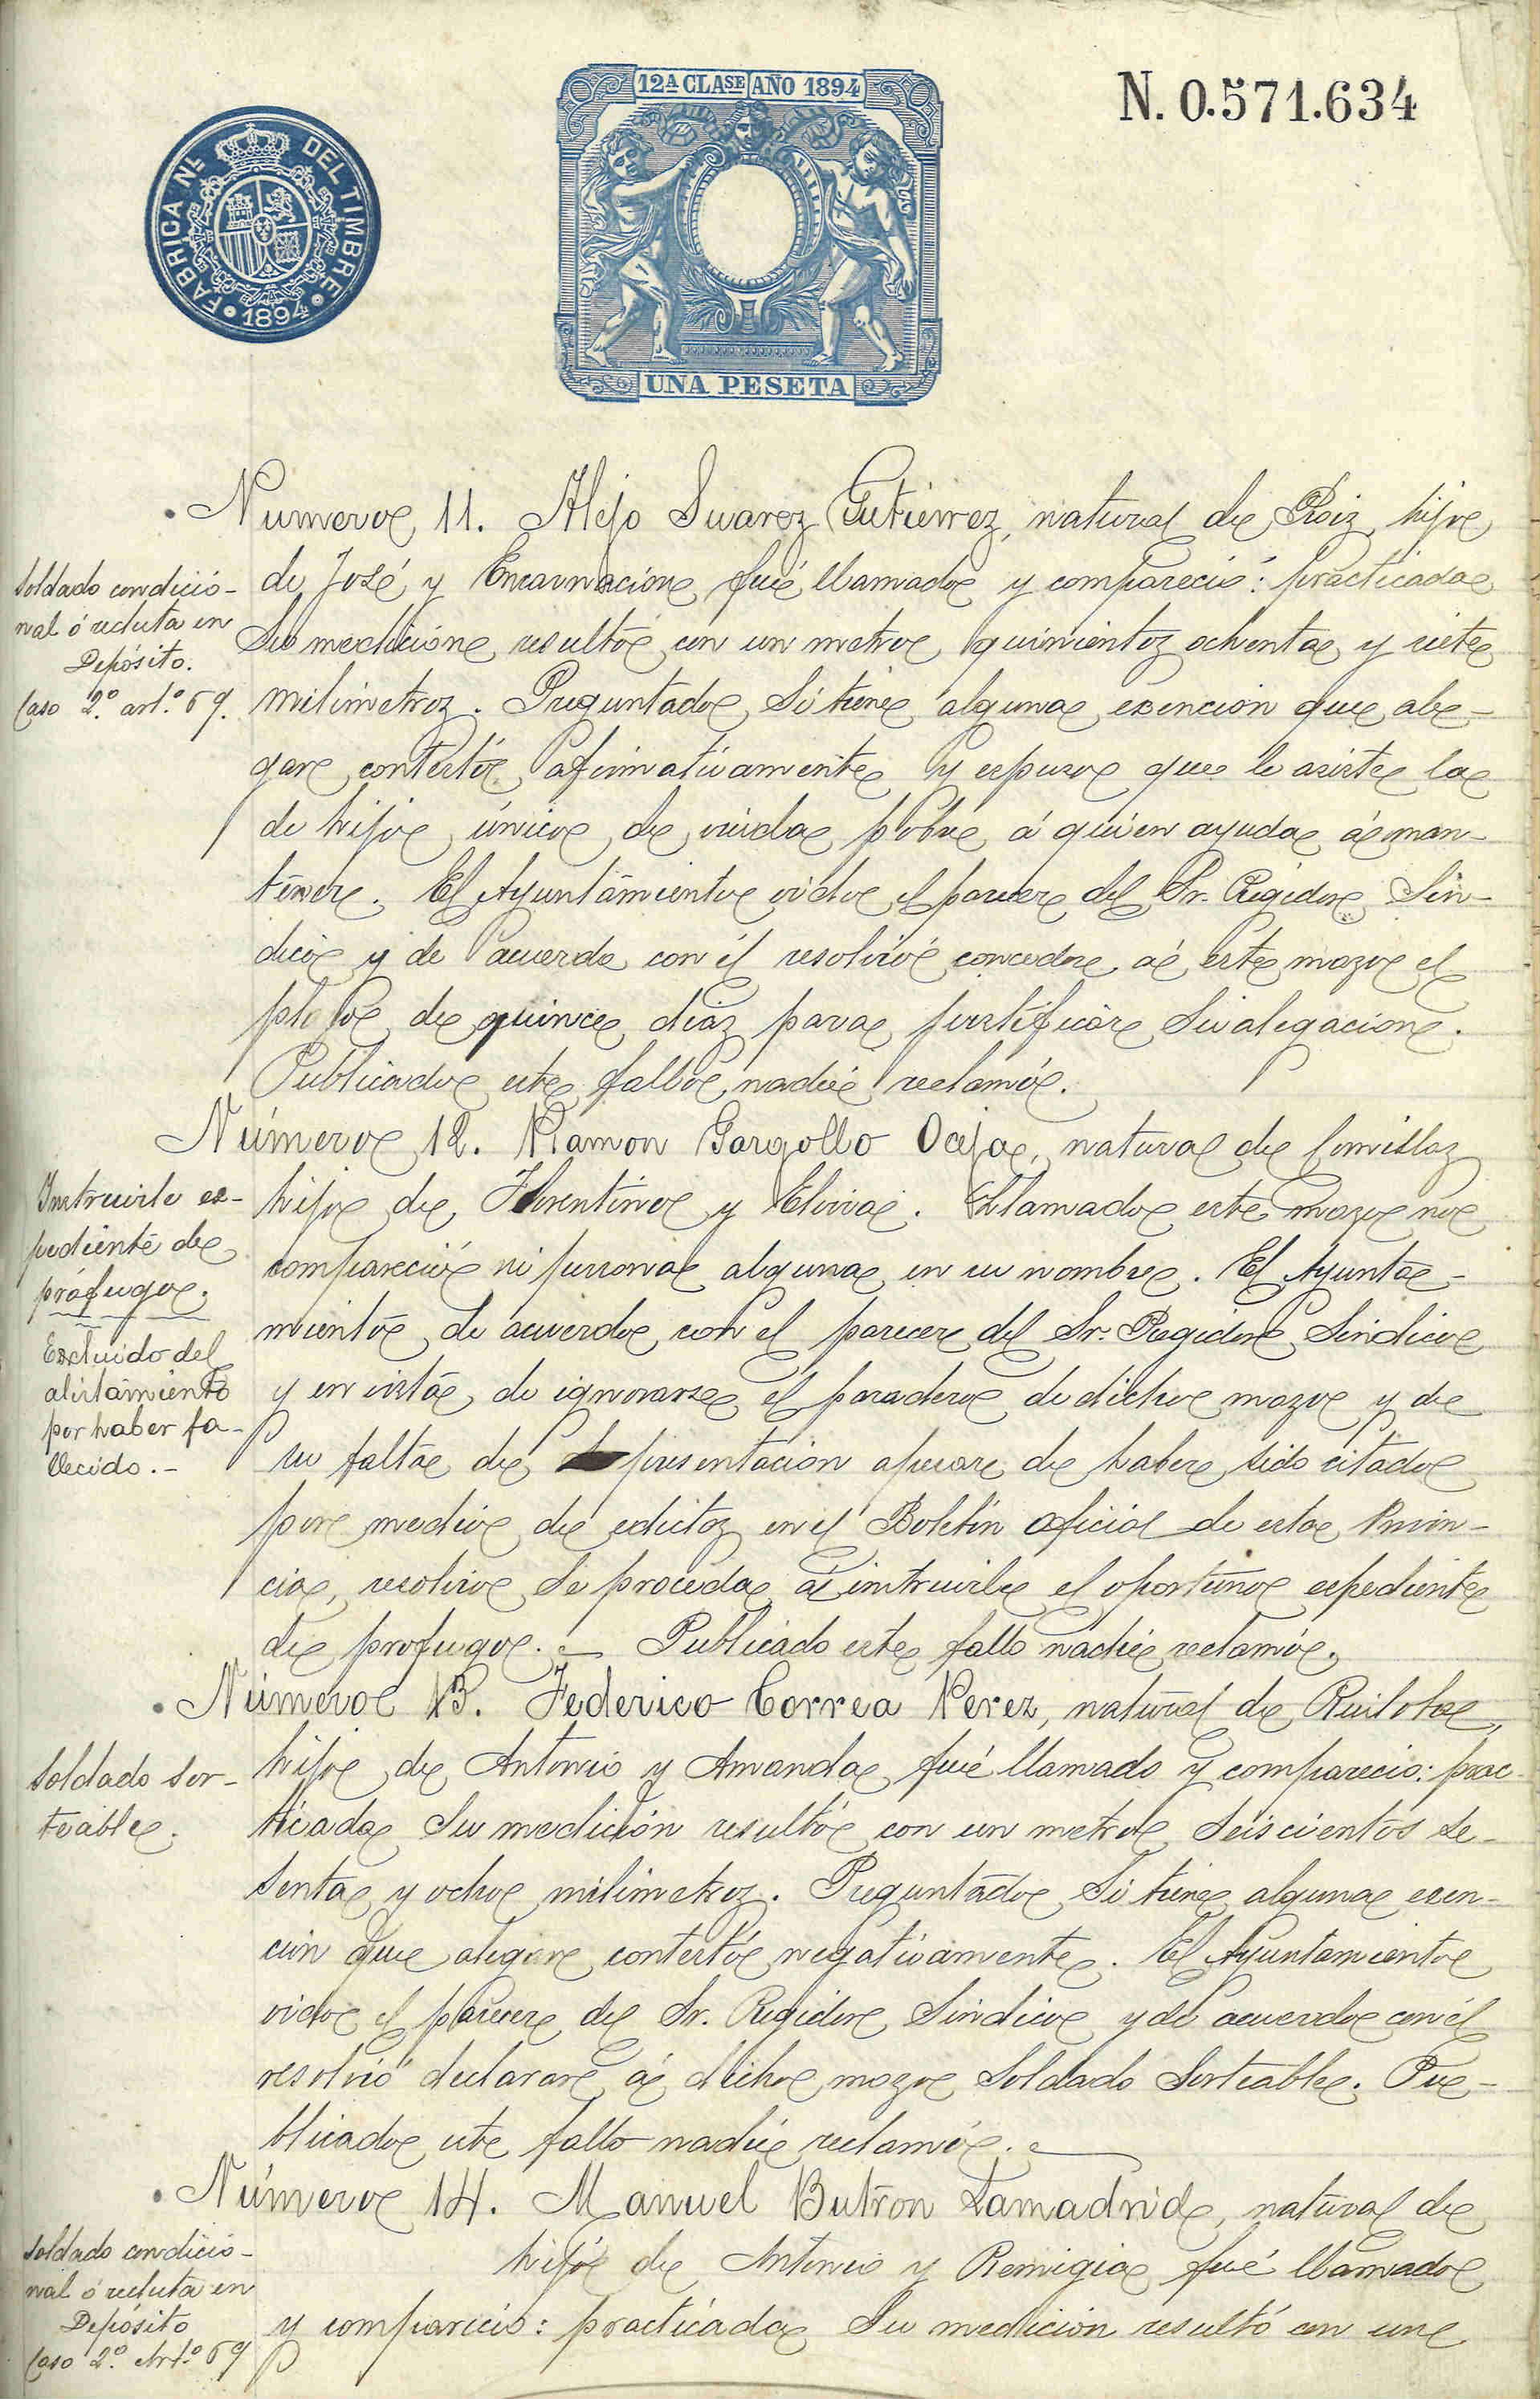 FÁBRICA NL. DEL TIMBRE
1894
12A CLASE AÑO 1894
UNA PESETA
N. 0.571.634
Numero 11. Alejo Suarez Gutierrez, natural de Roiz, hijo
de José y Encarnacion fué llamado y compareció: practicada
su medicion resultó con un metro quinientos ochenta y siete
milimetros. Preguntado si tiene alguna esencion que ale-
gar contestó afirmativamente y espuso que le asiste la
de hijo único de viuda pobre á quien ayuda á man-
tener. El Ayuntamiento oido el parecer del Sr. Regidor Sin-
dico y de acuerdo con él resolvió conceder á este mozo el
plazo de quince dias para justificar su alegacion.
Publicado este fallo nadie reclamó.
Soldado condicio-
nal ó recluta en
Depósito.
Caso 2º. art.º 69.
Número 12. Ramon Gargollo Oceja, natural de Comillas
hijo de Florentino y Elvira. Llamado este mozo no
compareció ni persona alguna en su nombre. El Ayunta-
miento de acuerdo con el parecer del Sr. Regidor Sindico
y en vista de ignorarse el paradero de dicho mozo y de
su falta de presentacion apesar de haber sido citado
por medio de edictos en el Boletin oficial de esta Provin-
cia, resolvio se proceda á instruirle el oportuno espediente
de profugo. Publicado este fallo nadie reclamó.
Instruirle es-
pediente de
prófugo.
Escluido del
alistamiento
por haber fa-
llecido.-
Número 13. Federico Correa Perez, natural de Ruiloba,
hijo de Antonio y Amanda fué llamado y comparecio: prac-
ticada su medición resultó con un metro seiscientos se-
senta y ocho milimetros. Preguntado si tiene alguna esen-
cion que alegar contestó negativamente. El Ayuntamiento
oido el parecer del Sr. Regidor Sindico y de acuerdo con él
resolvió declarar á dicho mozo Soldado Sorteable. Pu-
blicado este fallo nadie reclamó.
Soldado sor-
teable.
Número 14. Manuel Butron Lamadrid, natural de
hijo de Antonio y Remigia fué llamado
y compareció: practicada su medicion resultó con un
Soldado condicio-
nal ó recluta en
Depósito
Caso 2º. Art.º 69